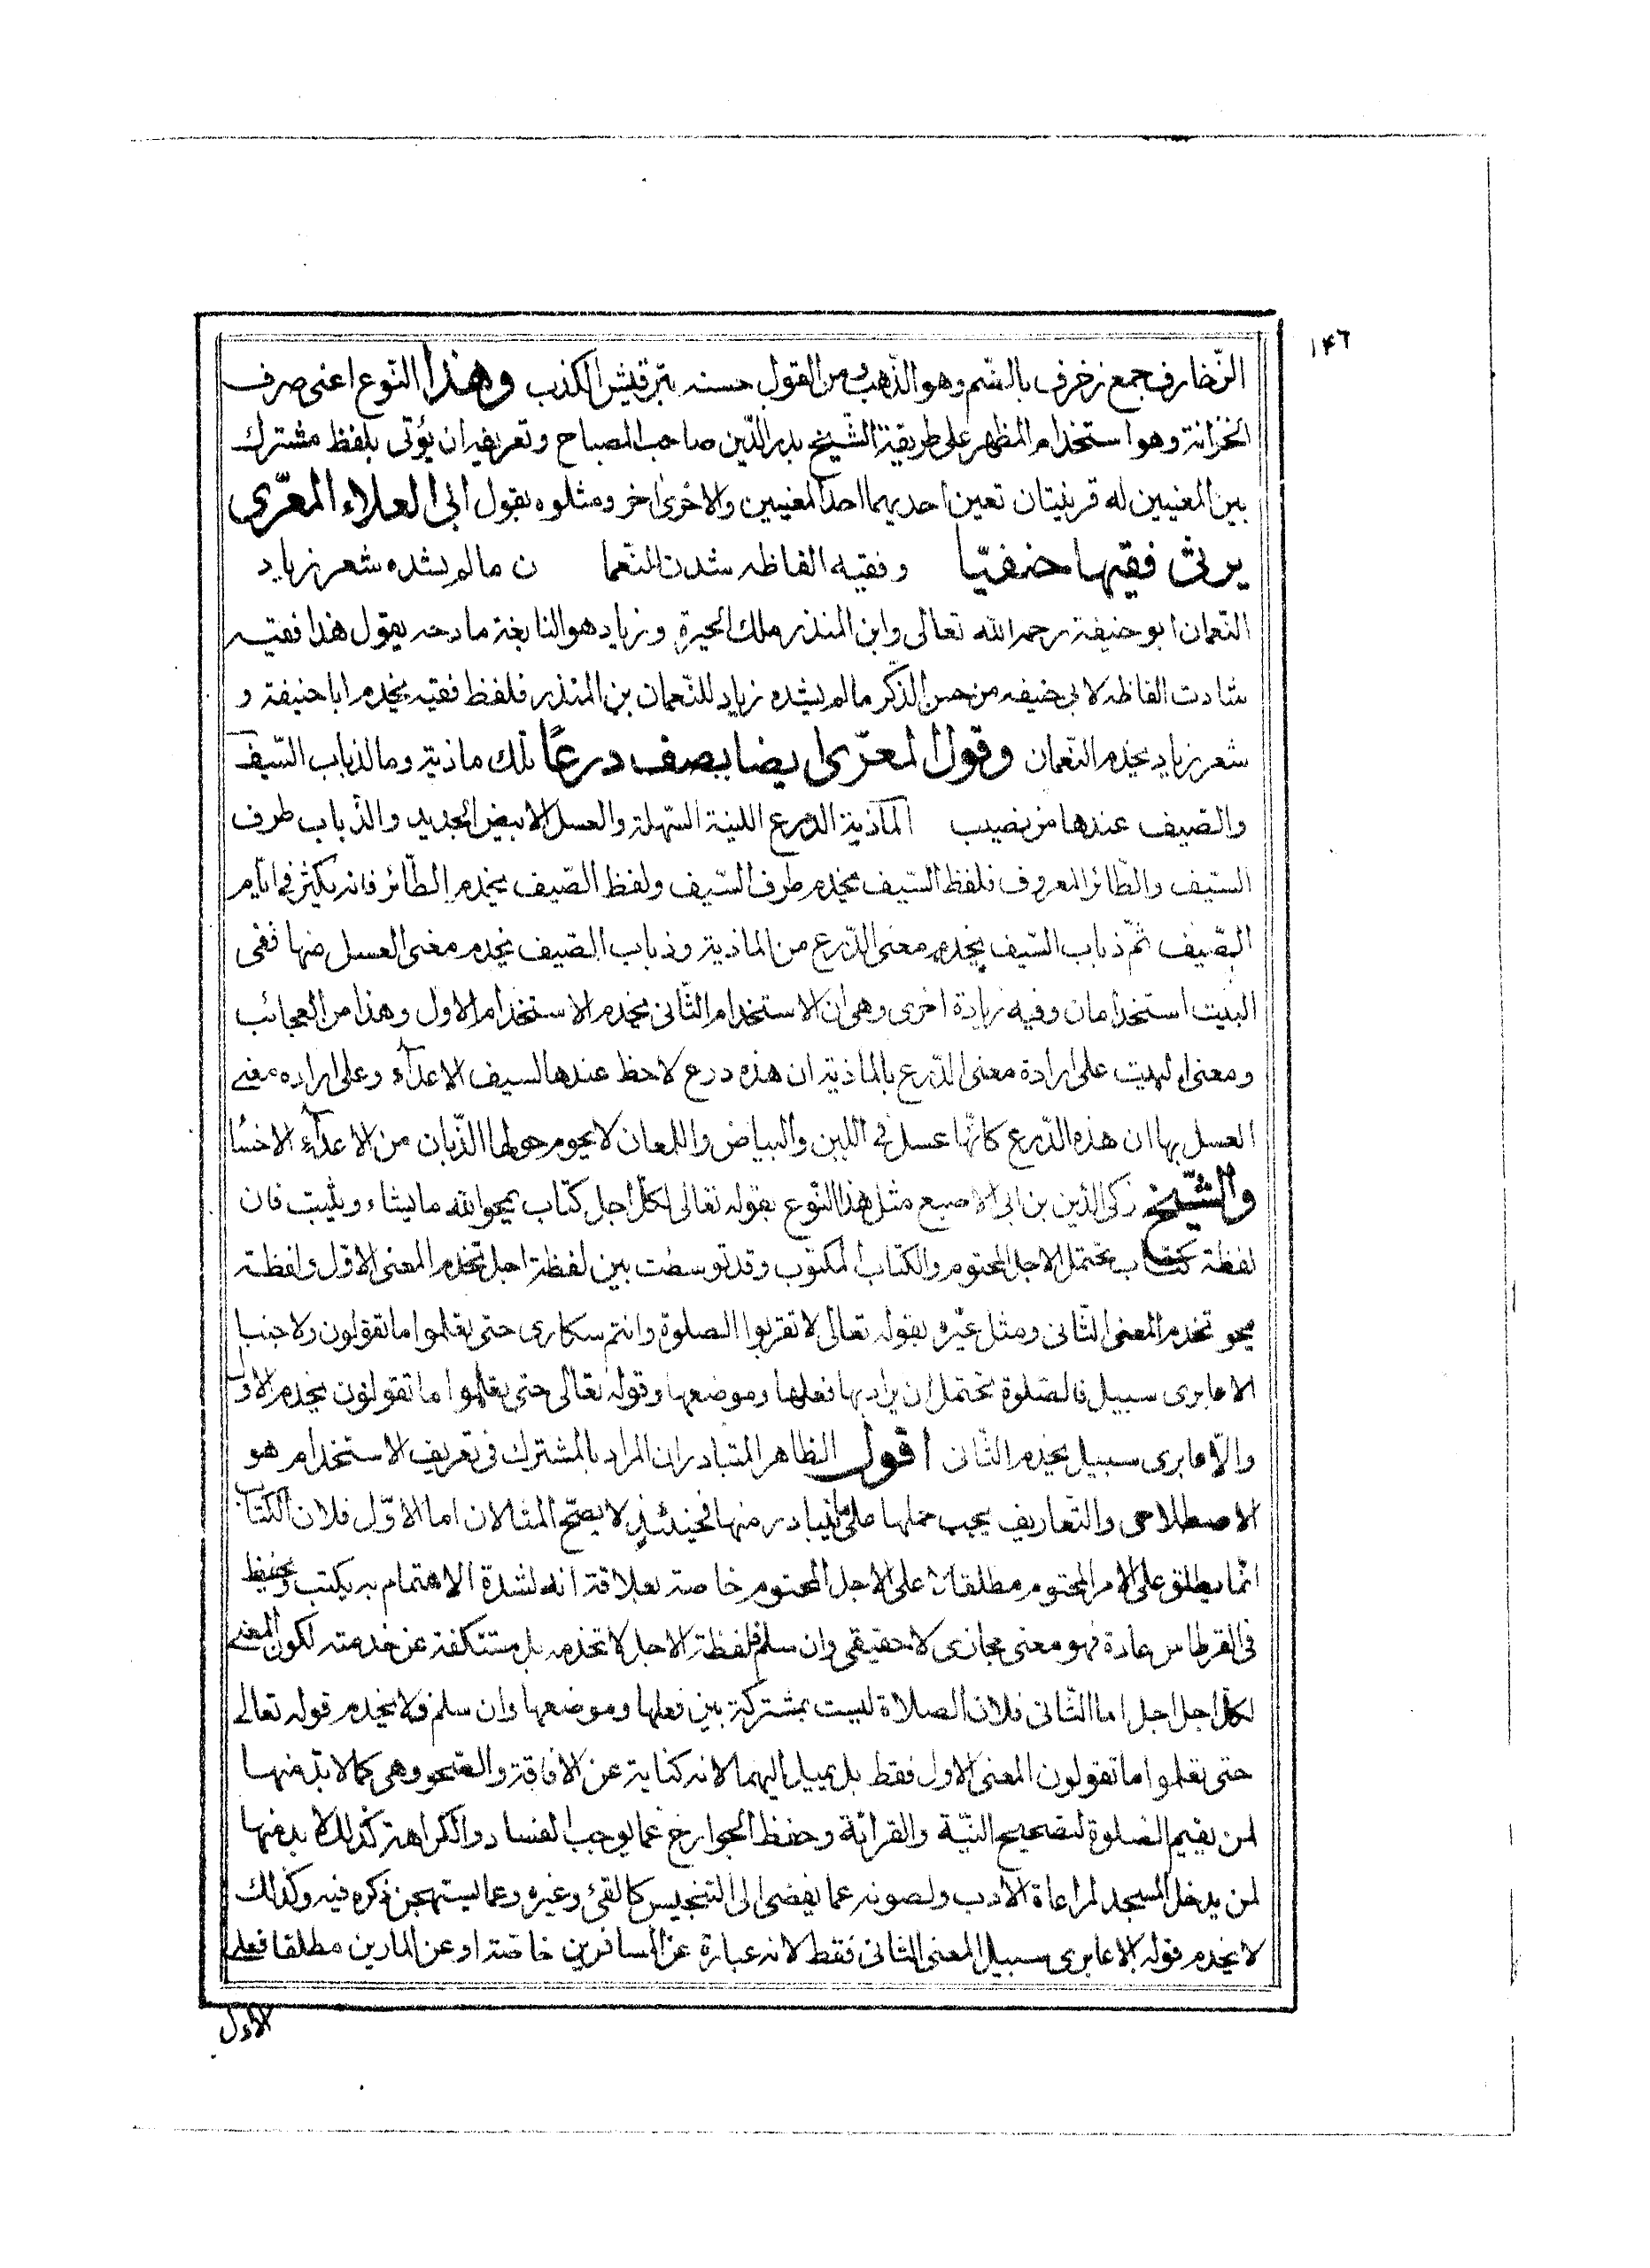 ١٤٦
الزخارف جمع زخرف بالضّم وهو الذّهب ومن القول حسنه بترقيش الكذب وهذا النّوع اعنى صرف
الخزانة وهو استخدام المظهر على طريقة الشّيخ بدر الدّين صاحب المصباح وتعريفه ان يؤتى بلفظ مشترك
بين المعنيين له قرينتان تعين احديهما احد المعنيين والاخرى اخر ومثلوه بقول ابى العلاء المعرّى
يرثى فقيها حنفيّا وفقيه الفاظه شدن النّعما ن مالم يشده شعر زياد
النّعمان ابو حنيفة رحمه الله تعالى وابن المنذر ملك الحيرة وزياد هو النابغة مادحه يقول هذا فقيه
شادت الفاظه لابى حنيفه من حسن الذّكر مالم يشده زياد للنّعمان بن المنذر فلفظ فقيه يخدم ابا حنيفة و
شعر زياد يخدم النّعمان وقول المعرّى ايضا يصف درعًا تلك ماذية وما لذباب السّيف
والصّيف عندها من نصيب الماذية الدّرع اللينة السّهلة والعسل الابيض الجديد والذّباب طرف
السّيف والطّائر المعروف فلفظ السّيف يخدم طرف السّيف ولفظ الصّيف يخدم الطّائر فانه يكثر فى ايّام
الصّيف ثمّ ذباب السّيف يخدم معنى الدّرع من الماذية وذباب الصّيف يخدم معنى العسل منها ففى
البيت استخدامان وفيه زيادة اخرى وهى ان الاستخدام الثّانى يخدم الاستخدام الاول وهذا من العجائب
ومعنى البيت على ارادة معنى الدّرع بالماذية ان هذه درع لا حظ عندها لسيف الاعدآء وعلى اراده معنى
العسل بها ان هذه الدّرع كانّها عسل فى اللين والبياض واللمعان لا يحوم حولها الذّبان من الاعدآء الاخسّا
والشّيخ زكى الدّين بن ابى الاصبع مثل هذا النّوع بقوله تعالى لكلّ اجل كتاب يمحو الله ما يشاء ويثبت فان
لفظة كتاب يحتمل الاجل المحتوم والكتاب المكتوب وقد توسطت بين لفظة اجل تخدم المعنى الاوّل ولفظة
يمحو تخدم المعنى الثّانى ومثل غيره بقوله تعالى لا تقربوا الصلوة وانتم سكارى حتى تعلموا ما تقولون ولا جنبا
الا عابرى سبيل فالصّلوة تحتمل ان يراد بها فعلها وموضعها وقوله تعالى حتى تعلموا ما تقولون يخدم الاول
والّا عابرى سبيل يخدم الثّانى اقول الظاهر المتبادر ان المراد بالمشترك فى تعريف الاستخدام هو
الاصطلاحى والتّعاريف يجب حملها على ما يتبادر منها فحينئذٍ لا يصحّ المثالان اما الاوّل فلان الكتاب
انّما يطلق على الامر المحتوم مطلقا على الاجل المحتوم خاصة بعلاقة انه لشدة الاهتمام به يكتب ويحفظ
فى القرطاس عادة فهو معنى مجازى لا حقيقى وان سلم فلفظة الاجل لا تخدمه بل مستنكفة عن خدمته لكون المعنى
لكلّ اجل اجل اما الثّانى فلان الصلاة ليست بمشتركة بين فعلها وموضعها وان سلم فلا يخدم قوله تعالى
حتى تعلموا ما تقولون المعنى الاول فقط بل يميل اليهما لانه كناية عن الافاقة والصّحو وهى كما لا بدّ منها
لمن يقيم الصلوة لتصحيح النّيّة والقرائة وحفظ الجوارح عما يوجب الفساد والكراهة كذلك لا بد منها
لمن يدخل المسجد لمراعاة الادب ولصونه عما يفضى الى التنجيس كالقئ وغيره وعما يستهجن ذكره فيه وكذلك
لا يخدم قوله الا عابرى سبيل المعنى الثانى فقط لانه عبارة عن المسافرين خاصّة او عن المارين مطلقا فعلى
الاول